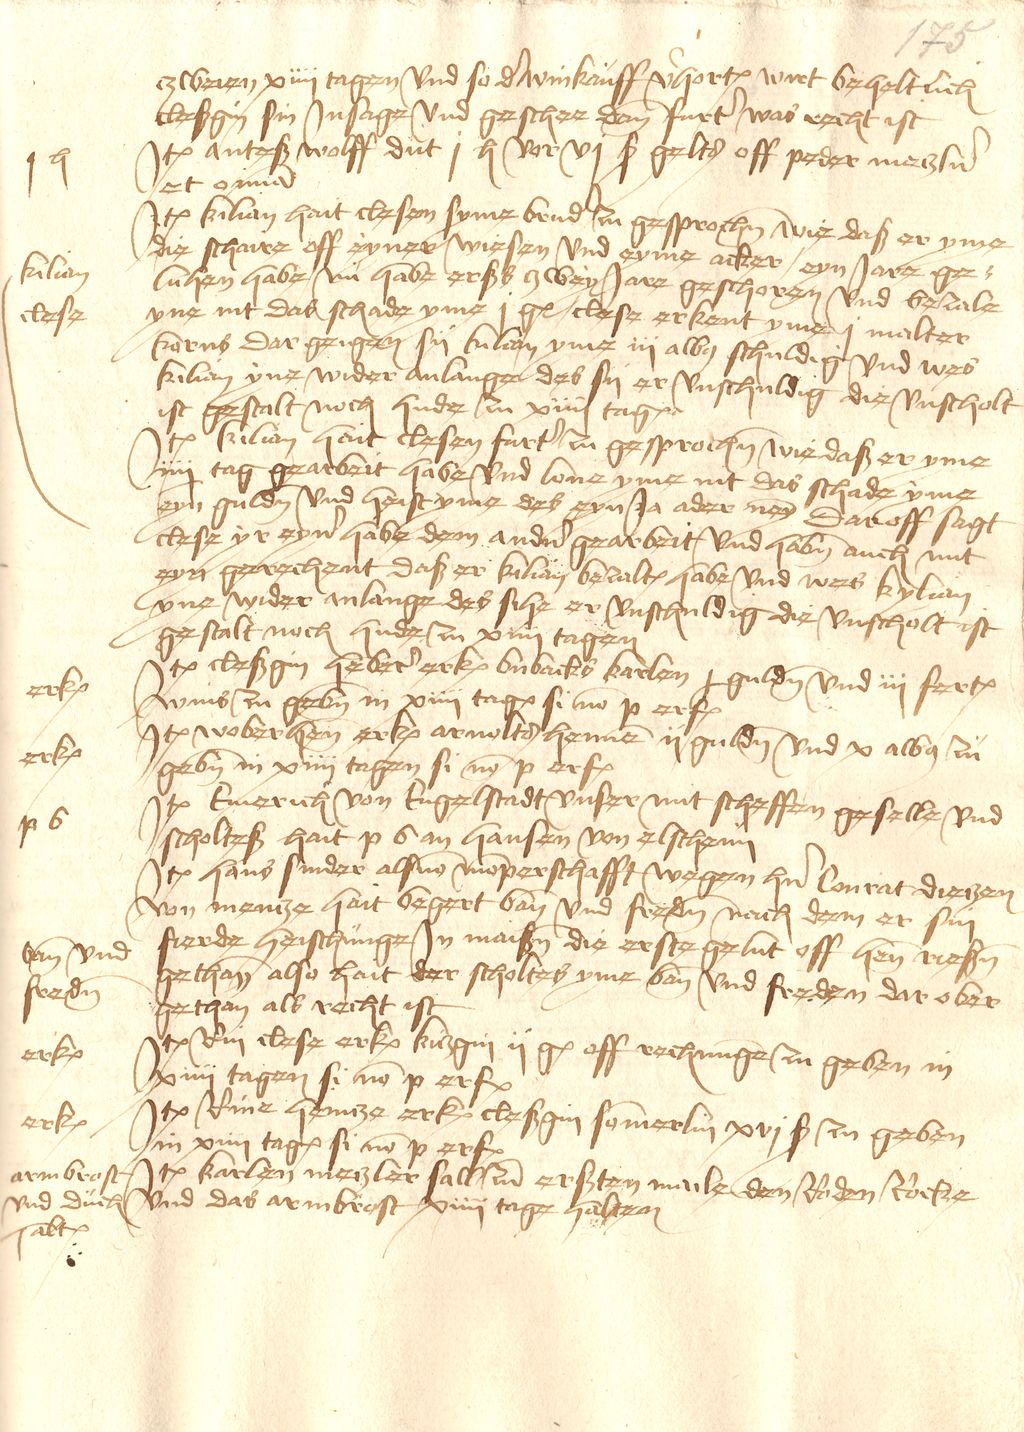 175
zweien xiiii tagen und so d' winkauff v'hort wirt beheltlich
cleßgin sin Insage und geschee dan furt' was recht ist
j h
Itͫ anteß wolff dut j h vor vj ß gelts off peder metzler
et omnia
Itͫ kilian hait clesen syme brud' zu gesprochn wie daß er yme
die schaire off eyner wiesen und eyme acker eyn Jare ge-
kilian
luhen habe nu habe erß zwey Jare geschoren und bezale
clese
yne nit das schade yme j gͫ clese erkent yme j malter
korns dar geigen sij kilian yme iij albꝯ schuldig und wes
kilian yne wider anlange des sij er unschuldig die unscholt
ist gestalt noch hude zu xiiii tagͫ
Itͫ kilian hait clesen furt' zu gesprochn wie daß er yme
iiii tag gearbeit habe und lone yme nit das schade yme
eyn guldn und heist yme des eyn Ja ader ney Daroff sagt
clese yr eyn' habe dem andn' gearbeit und habn auch mit
eyn gerechent daß er kilian bezalt habe und wes kylian
yne wider anlange des sihe er unschuldig die unscholt ist
gestalt noch hude zu xiiii tagen
erkͫ
Itͫ cleßgin heber' erkͫ bubacks karlen j guldn und iii fertͫ
wins zu gebn in xiiii tagͫ si no p erfͫ
erkͫ
Itͫ woberhen erkͫ arnolts henne ij guldn und x albꝯ zu
gebn in xiiii tagen si no p erfͫ
p 6
Itͫ Emerich von Engelstadt unser mit scheffen geselle und
scholteß hait p 6 an hansen von elsheim
Itͫ hans snider als mo momperschafft wegen hn' Conrat dietzen
von mentze hait begert ban und fredn nach dem er sin
ban und
fierde heischunge In maißn die erste gelut off hen rießn
fredn
gethan also hait der scholtes yme ban und freden dar ober
gethan als recht ist
erkͫ
Itͫ Rin clese erkͫ kitzgin ij gͫ off rechnunge zu geben in
xiiii tagen si no p erfͫ
erkͫ
Itͫ Rine hentze erkͫ cleßgin somerlin xvj ß zu geben
in xiiii tagͫ si no p erfͫ
armbrost
Itͫ karlen metzler sall zu erßten male den Roden Rocke
und duch
und das armbrost xiiii tage halten
haltͫ